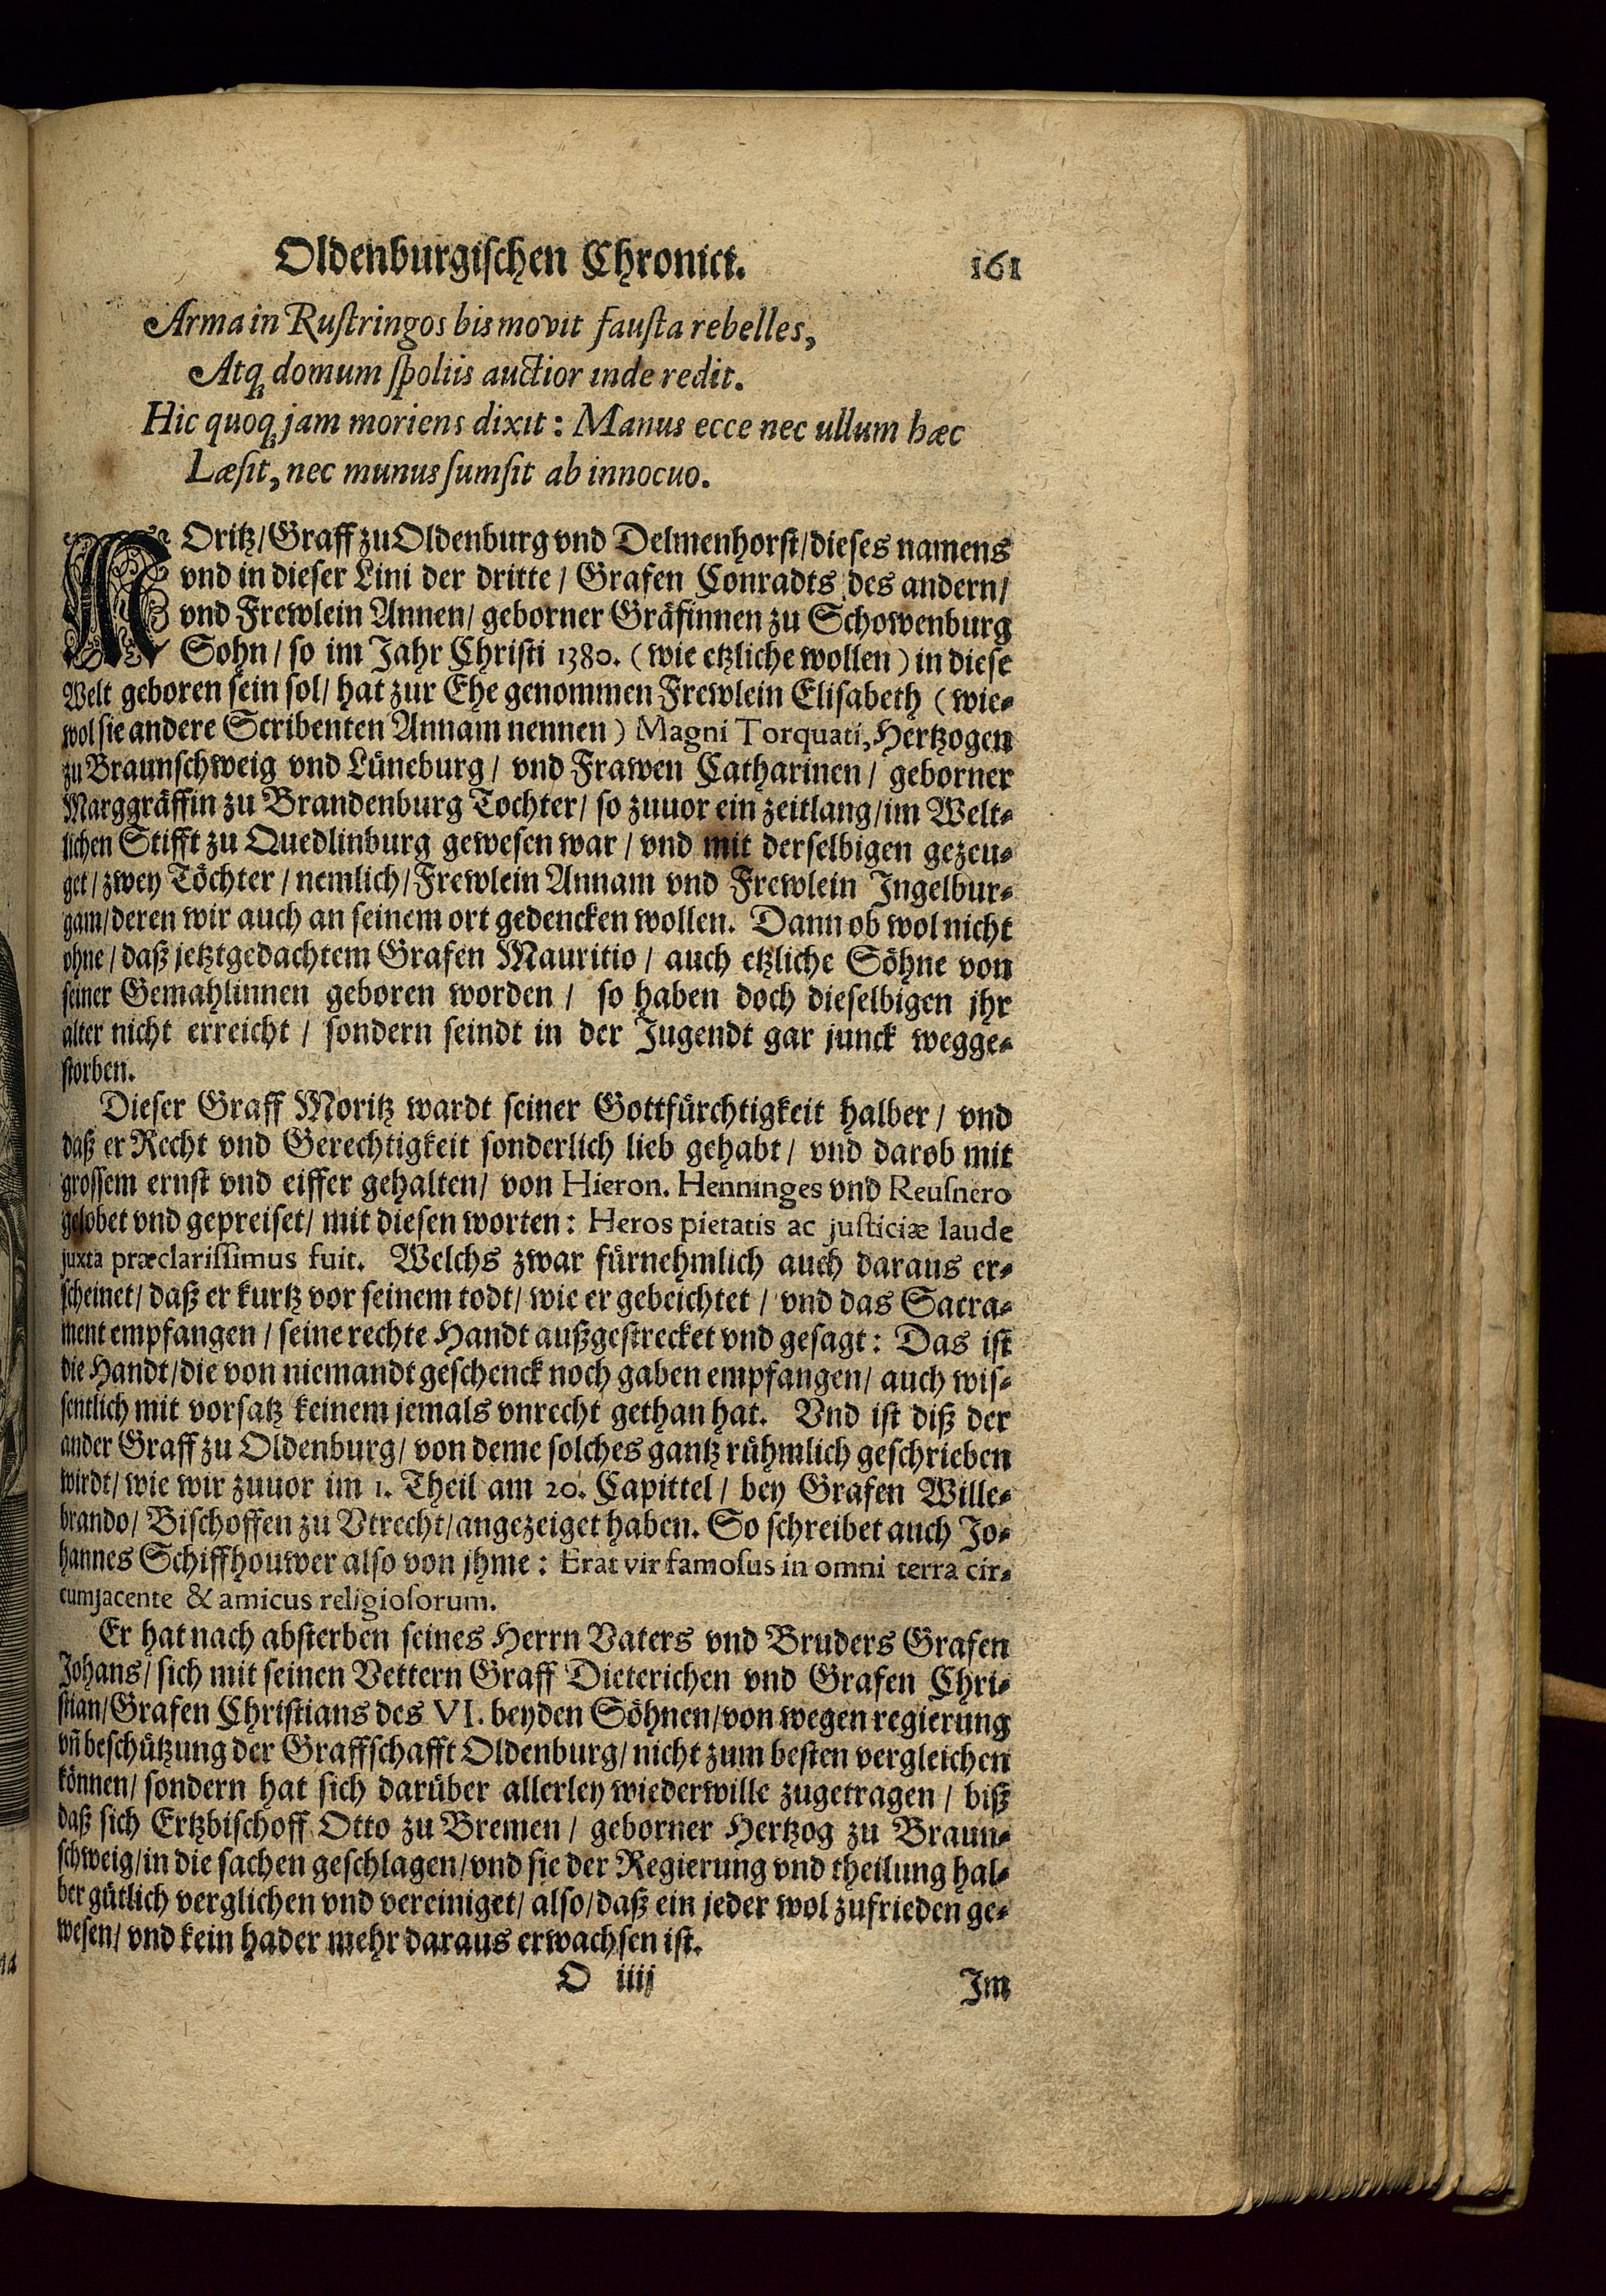 Oldenburgischen Chronict. 161
Arma in Rustringos bis movit fausta rebelles,
Atq; domum spoliis auctior inde redit.
Hic quoq; jam moriens dixit: Manus ecce nec ullum hæc
Læsit, nec munus sumsit ab innocuo.
MOritz/ Graff zu Oldenburg vnd Delmenhorst/ dieses namens
vnd in dieser Lini der dritte/ Grafen Conradts des andern/
vnd Frewlein Annen/ geborner Gräfinnen zu Schowenburg
Sohn/ so im Jahr Christi 1380. (wie etzliche wollen) in diese
Welt geboren sein sol/ hat zur Ehe genommen Frewlein Elisabeth (wie-
wol sie andere Scribenten Annam nennen) Magni Torquati, Hertzogen
zu Braunschweig vnd Lüneburg/ vnd Frawen Catharinen/ geborner
Marggräffin zu Brandenburg Tochter/ so zuuor ein zeitlang/ im Welt-
lichen Stifft zu Quedlinburg gewesen war/ vnd mit derselbigen gezeu-
get/ zwey Töchter/ nemlich/ Frewlein Annam vnd Frewlein Ingelbur-
gam/ deren wir auch an seinem ort gedencken wollen. Dann ob wol nicht
ohne/ daß jetztgedachtem Grafen Mauritio/ auch etzliche Söhne von
seiner Gemahlinnen geboren worden/ so haben doch dieselbigen jhr
alter nicht erreicht/ sondern seindt in der Jugendt gar junck wegge-
storben.
Dieser Graff Moritz wardt seiner Gottfürchtigkeit halber/ vnd
daß er Recht vnd Gerechtigkeit sonderlich lieb gehabt/ vnd darob mit
grossem ernst vnd eiffer gehalten/ von Hieron. Henninges vnd Reusnero
gelobet vnd gepreiset/ mit diesen worten: Heros pietatis ac justiciæ laude
juxta præclarissimus fuit. Welchs zwar fürnehmlich auch daraus er-
scheinet/ daß er kurtz vor seinem todt/ wie er gebeichtet/ vnd das Sacra-
ment empfangen/ seine rechte Handt außgestrecket vnd gesagt: Das ist
die Handt/ die von niemandt geschenck noch gaben empfangen/ auch wis-
sentlich mit vorsatz keinem jemals vnrecht gethan hat. Vnd ist diß der
ander Graff zu Oldenburg/ von deme solches gantz rühmlich geschrieben
wirdt/ wie wir zuuor im 1. Theil am 20. Capittel/ bey Grafen Wille-
brando/ Bischoffen zu Vtrecht/ angezeiget haben. So schreibet auch Jo-
hannes Schiffhouwer also von jhme: Erat vir famosus in omni terra cir-
cumjacente & amicus religiosorum.
Er hat nach absterben seines Herrn Vaters vnd Bruders Grafen
Johans/ sich mit seinen Vettern Graff Dieterichen vnd Grafen Chri-
stian/ Grafen Christians des VI. beyden Söhnen/ von wegen regierung
vn̄ beschützung der Graffschafft Oldenburg/ nicht zum besten vergleichen
können/ sondern hat sich darüber allerley wiederwille zugetragen/ biß
daß sich Ertzbischoff Otto zu Bremen/ geborner Hertzog zu Braun-
schweig/ in die sachen geschlagen/ vnd sie der Regierung vnd theilung hal-
ber gütlich verglichen vnd vereiniget/ also/ daß ein jeder wol zufrieden ge-
wesen/ vnd kein hader mehr daraus erwachsen ist.
O iiij Im